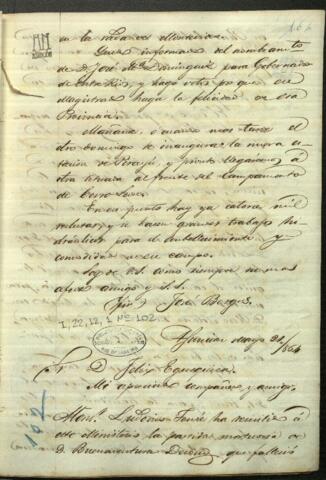 166
en la rada de Montevideo.
Quedo informado del nombramto
de D. José Ma. Dominguez para Gobernador
de Entre Rios, y hago votos pa que su
magistratura haga la felicidad de esa
Provincia.
Mañana, ó cuando mas tarde el
dro domingo se inaugura la nueva es-
tacion de Pirayú, y pronto llegará á
otra situada al frente del Campamento
de Cerro Leon.
En ese punto hay ya catorce mil
reclutas, y se hacen grandes trabajos hi-
draulicos para el embellecimiento y
comodidad de ese campo.
Soy de V.S. como siempre su mas
afmo amigo y S.S.
José Berges
I, 22, 12, 1 Nº 102
Asuncion Mayo 21/864
Sr D. Felix Egusquiza.
Mi apreciado compatriota y amigo.
102
Monsr. Ludovico Tenré ha remitido á
este Ministerio la partida mortuoria de
D. Buenaventura Decoud que falleció